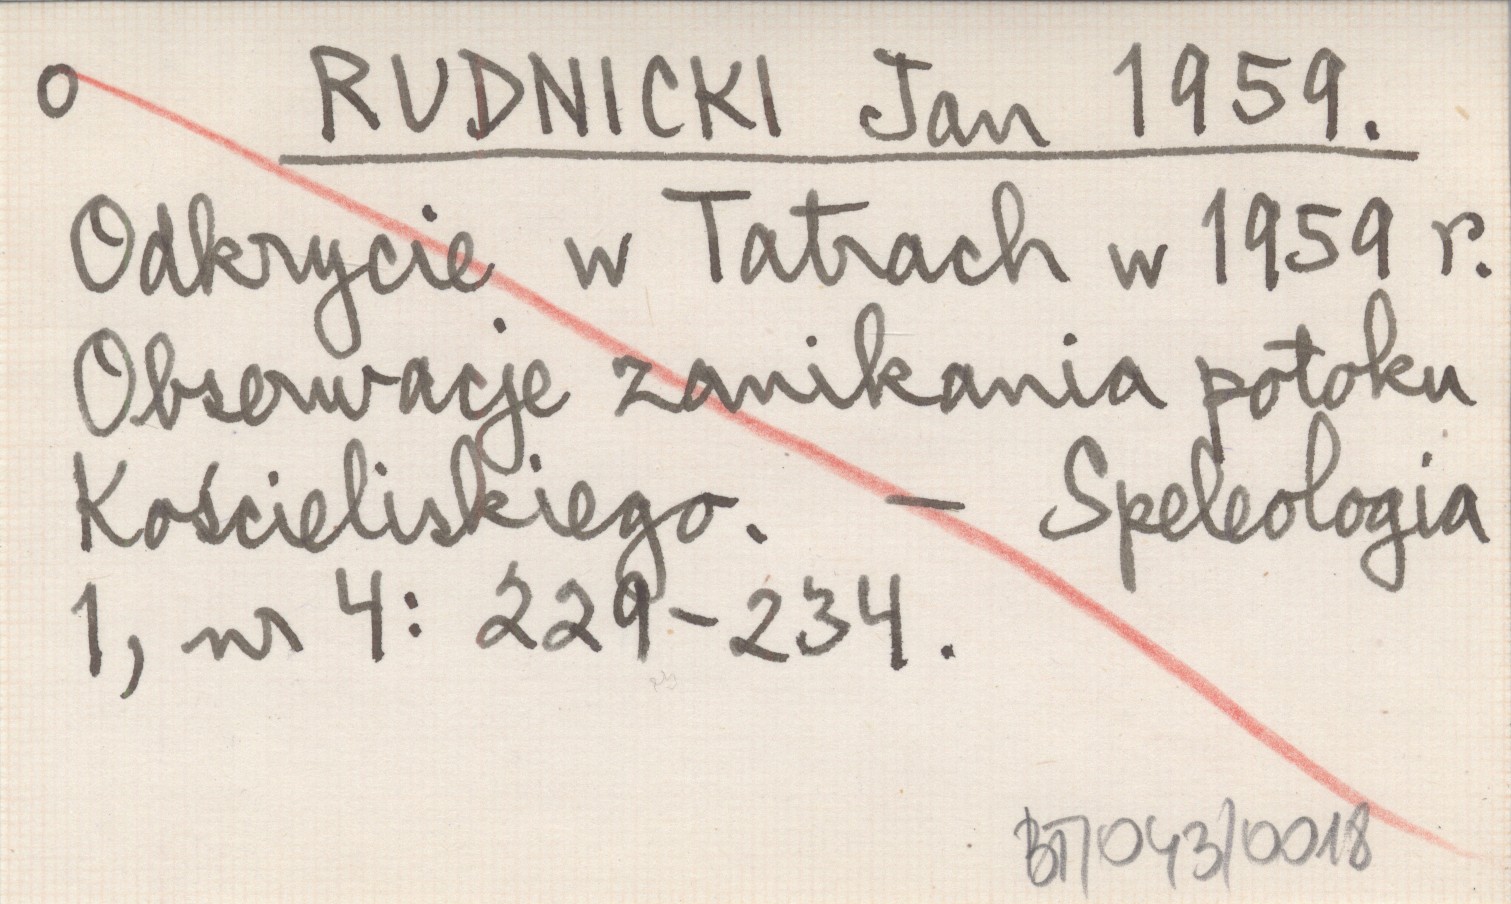 o RUDNICKI Jan 1959.
Odkrycie w Tatrach w 1959 r.
Obserwacje zanikania potoku
Kościeliskiego. — Speleologia
1, nr 4: 229-234.
BT/043/0018